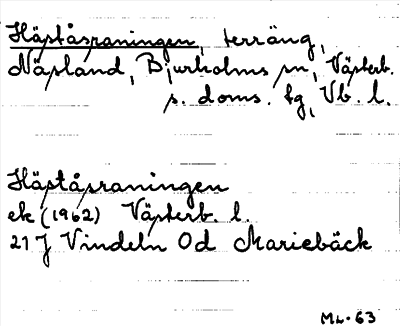 Häståsraningen, terräng,
Näsland, Bjurholms sn, Västerb.
s. doms. tg, Vb. l.
Häståsraningen
ek (1962) Västerb. l.
21 J Vindeln 0d Mariebäck
ML-63